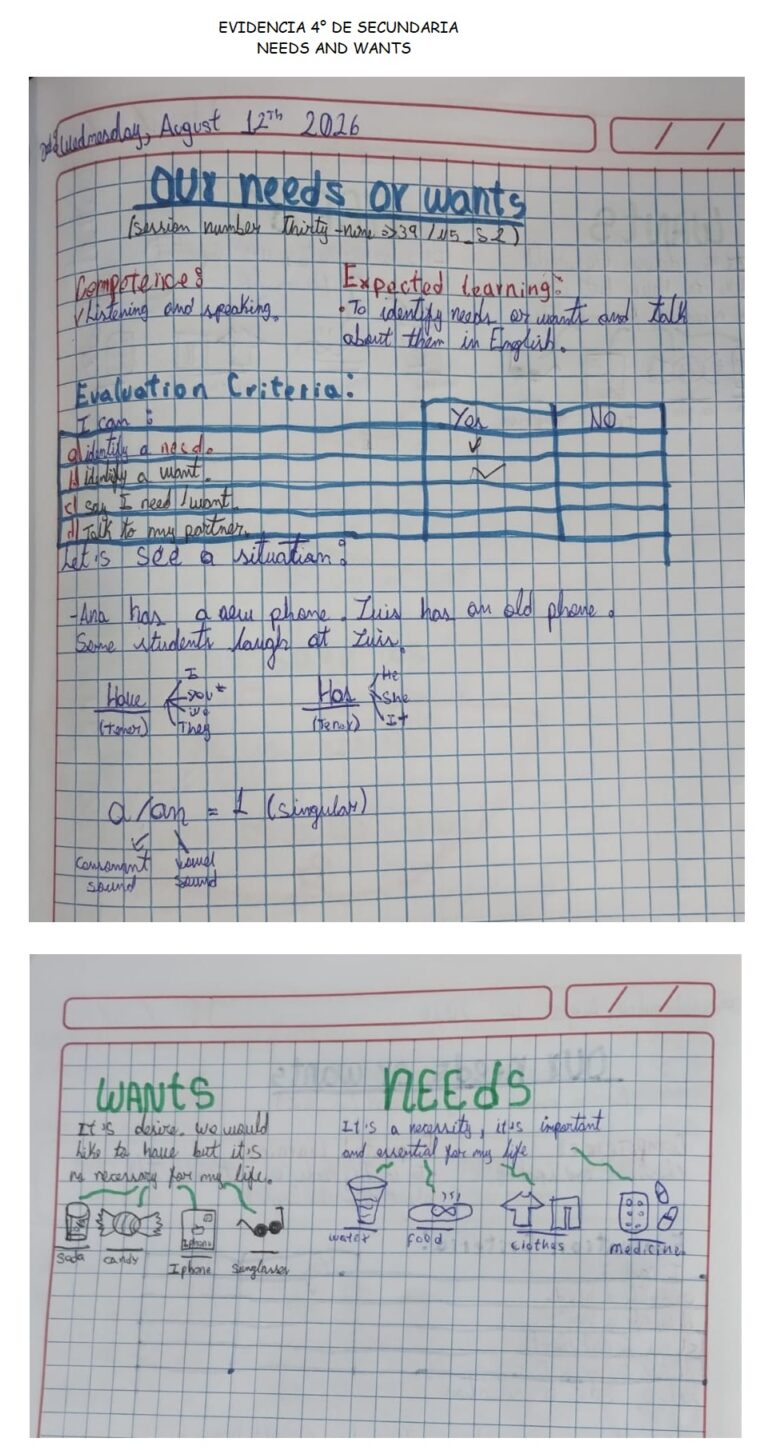 EVIDENCIA 4° DE SECUNDARIA
NEEDS AND WANTS
Wednesday, August 12Th 2026
OUr needs or wants
(session number Thirty-nine => 39 / U5_S2)
Competence: Expected learning:
✓Listening and speaking. • To identify needs or wants and talk
about them in English.
Evaluation Criteria:
I can : Yes NO
a) identify a need. ✓
b) identify a want. ✓
c) say I need / want.
d) Talk to my partner.
Let's see a situation:
-Ana has a new phone. Luis has an old phone.
Some students laugh at Luis.
Have I Has He
you* She
(Tener) we (Tener) It
They
a/an = 1 (singular)
consonant vowel
sound sound
WANTS NEEDS
It's desire. we would It's a necessity, it's important
like to have but it's and essential for my life
no necessary for my life.
Iphone
soda candy Iphone sunglasses water food clothes medicine.